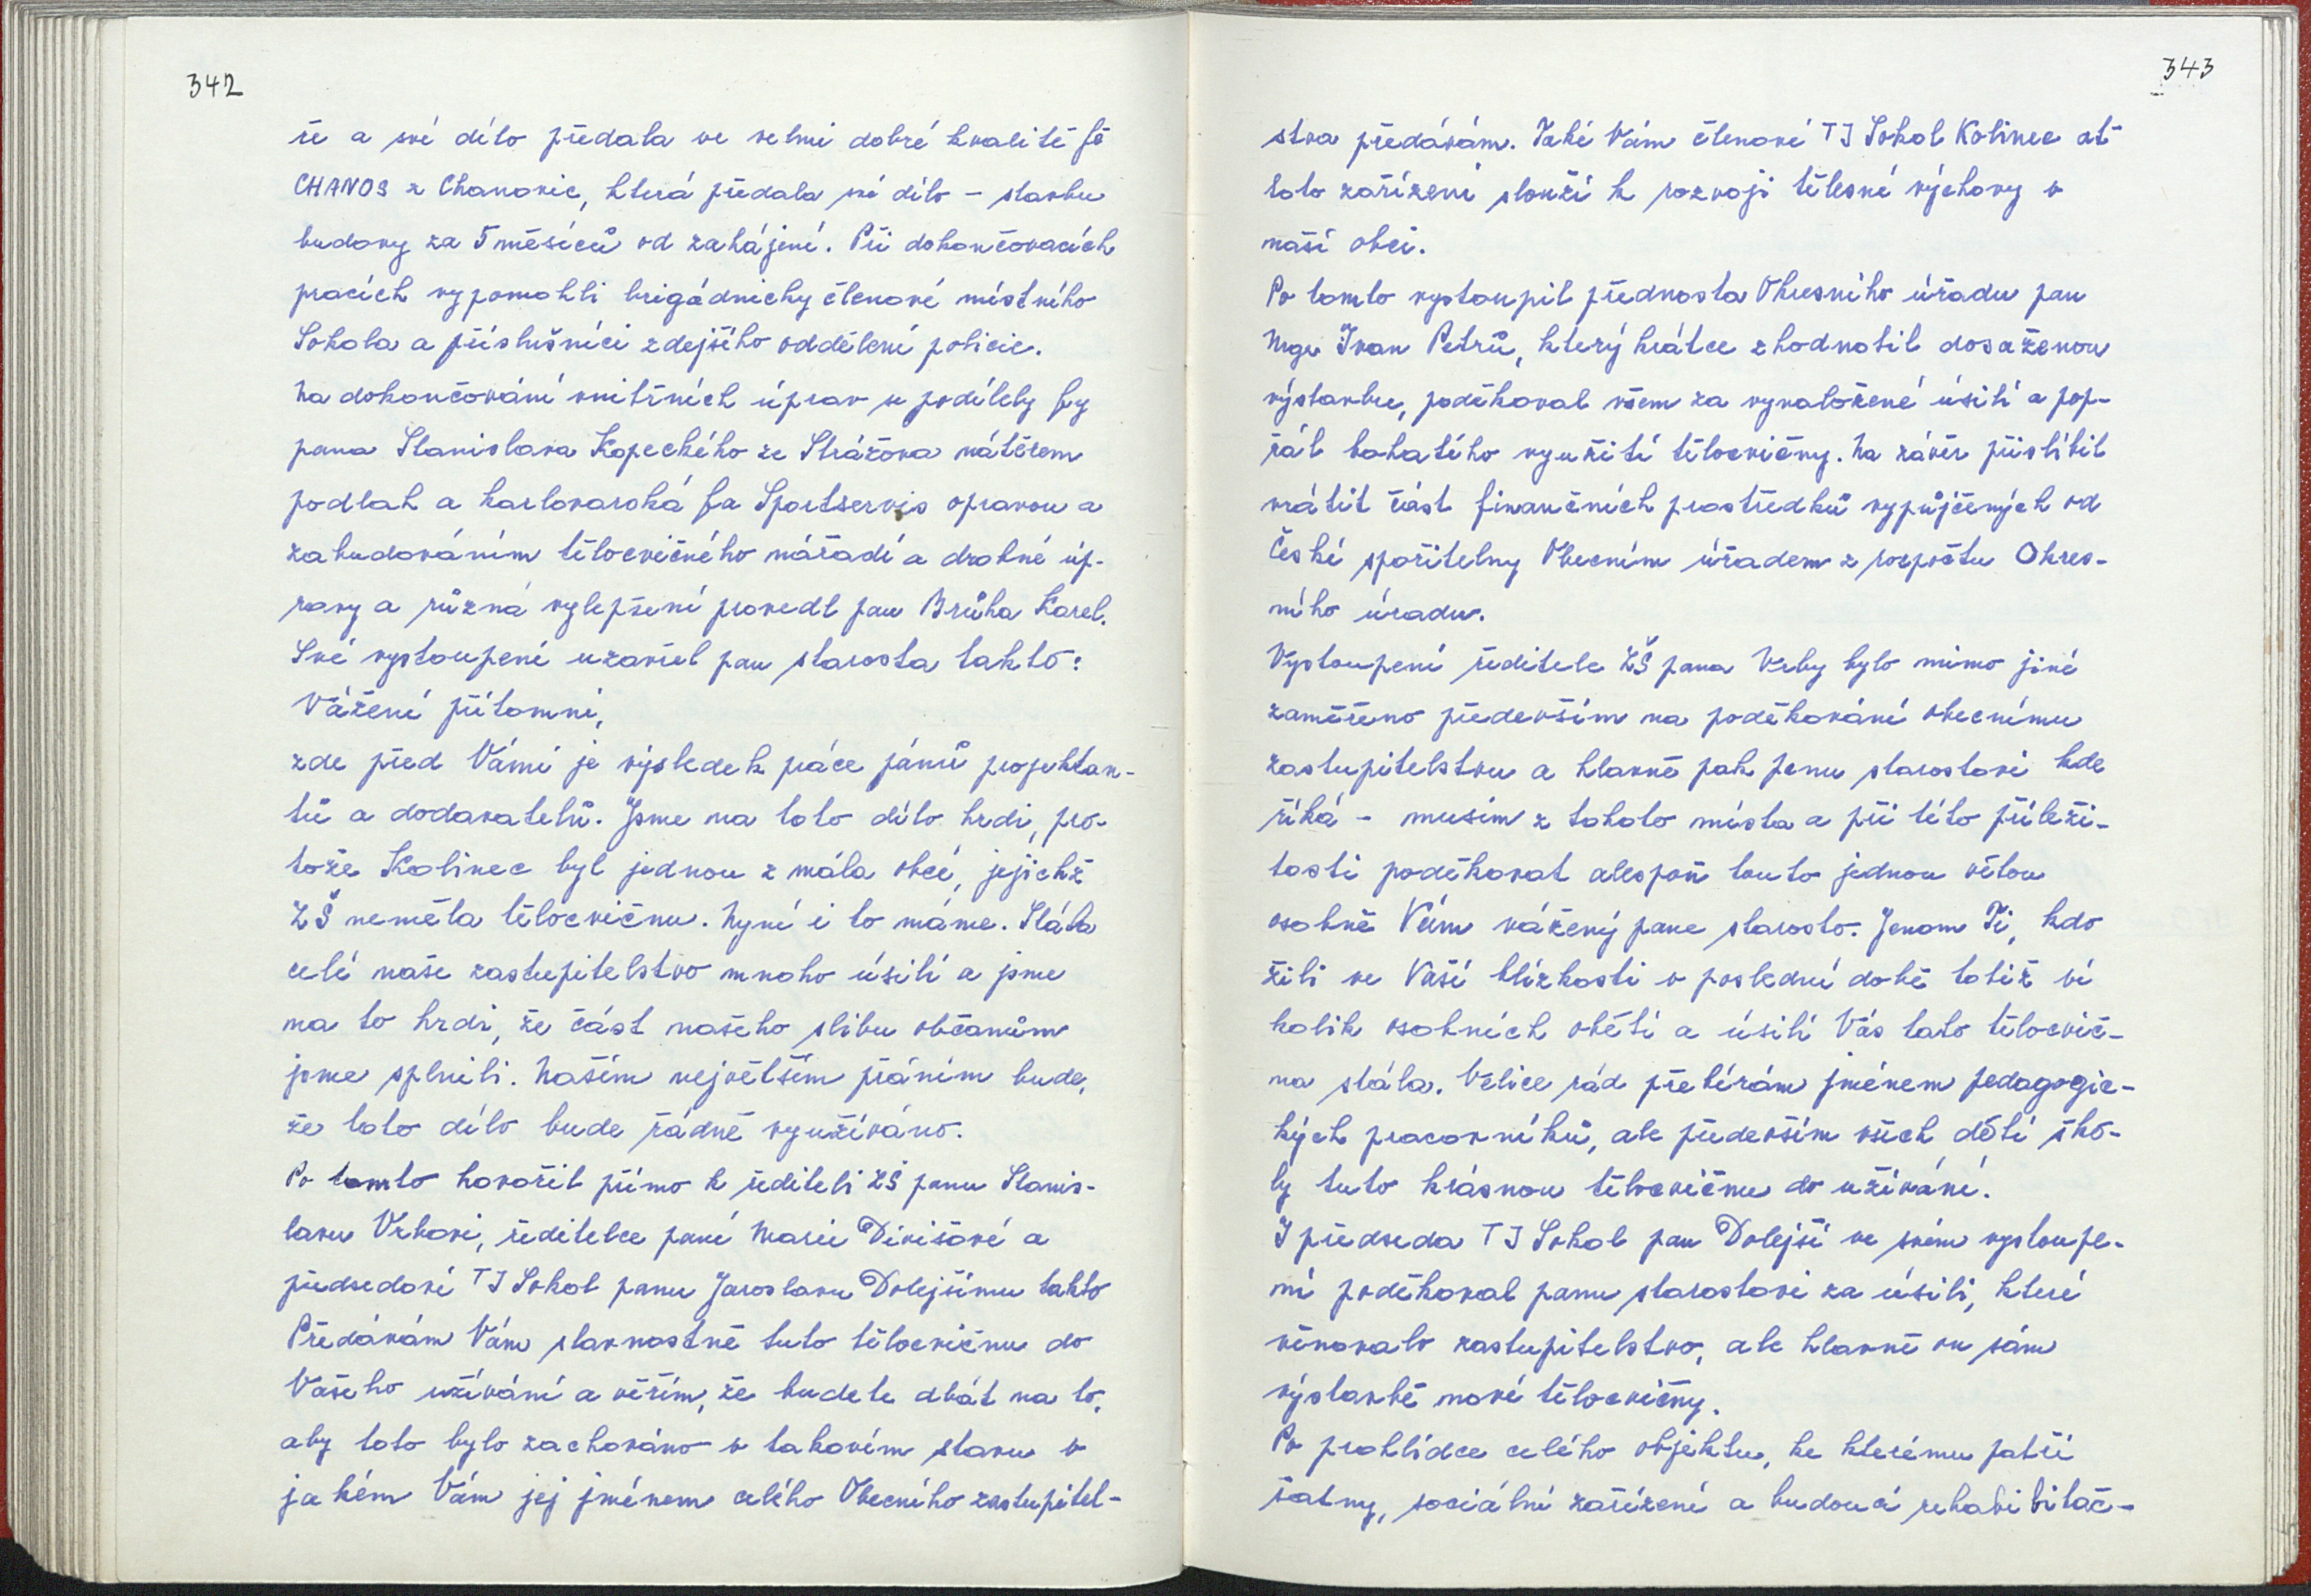 342
ře a své dílo předala ve velmi dobré kvalitě fě
CHANOS z Chanovic, která předala své dílo – stavbu
budovy za 5 měsíců od zahájení. Při dokončovacích
pracích vypomohli brigádnicky členové místního
Sokola a příslušníci zdejšího oddělení policie.
Na dokončování vnitřních úprav se podílely fy
pana Stanislava Kopeckého ze Strážova nátěrem
podlah a karlovarská fa Sportservis opravou a
zabudováním tělocvičného nářadí a drobné úp-
ravy a různá vylepšení provedl pan Brůha Karel.
Své vystoupení uzavřel pan starosta takto:
Vážení přítomní,
zde před Vámi je výsledek práce pánů projektan-
tů a dodavatelů. Jsme na toto dílo hrdi, pro-
tože Kolinec byl jednou z mála obcí, jejichž
ZŠ neměla tělocvičnu. Nyní i to máme. Stála
celé naše zastupitelstvo mnoho úsilí a jsme
na to hrdi, že část našeho slibu občanům
jsme splnili. Naším největším přáním bude,
že toto dílo bude řádně využíváno.
Po tomto hovořil přímo k řediteli ZŠ panu Stanis-
lavu Vrbovi, ředitelce paní Marii Divišové a
předsedovi TJ Sokol panu Jaroslavu Dolejšímu takto
Předávám Vám slavnostně tuto tělocvičnu do
Vašeho užívání a věřím, že budete dbát na to,
aby toto bylo zachováno v takovém stavu v
jakém Vám jej jménem celého Obecního zastupitel-
343
stva předávám. Také Vám členové TJ Sokol Kolinec ať
toto zařízení slouží k rozvoji tělesné výchovy v
naší obci.
Po tomto vystoupil přednosta Okresního úřadu pan
Mgr Ivan Petrů, který krátce zhodnotil dosaženou
výstavbu, poděkoval všem za vynaložené úsilí a pop-
řál bohatého využití tělocvičny. Na závěr přislíbil
vrátit část finančních prostředků vypůjčených od
České spořitelny Obecním úřadem z rozpočtu Okres-
ního úřadu.
Vystoupení ředitele ZŠ pana Vrby bylo mimo jiné
zaměřeno především na poděkování obecnímu
zastupitelstvu a hlavně pak panu starostovi kde
říká – musím z tohoto místa a při této příleži-
tosti poděkovat alespoň touto jednou větou
osobně Vám vážený pane starosto. Jenom Ti, kdo
žili ve Vaší blízkosti v poslední době totiž ví
kolik osobních obětí a úsilí Vás tato tělocvič-
na stála. Velice rád přebírám jménem pedagogic-
kých pracovníků, ale především všech dětí ško-
ly tuto krásnou tělocvičnu do užívání.
I předseda TJ Sokol pan Dolejší ve svém vystoupe-
ní poděkoval panu starostovi za úsilí, které
věnovalo zastupitelstvo, ale hlavně on sám
výstavbě nové tělocvičny.
Po prohlídce celého objektu, ke kterému patří
šatny, sociální zařízení a budoucí rehabilitač-